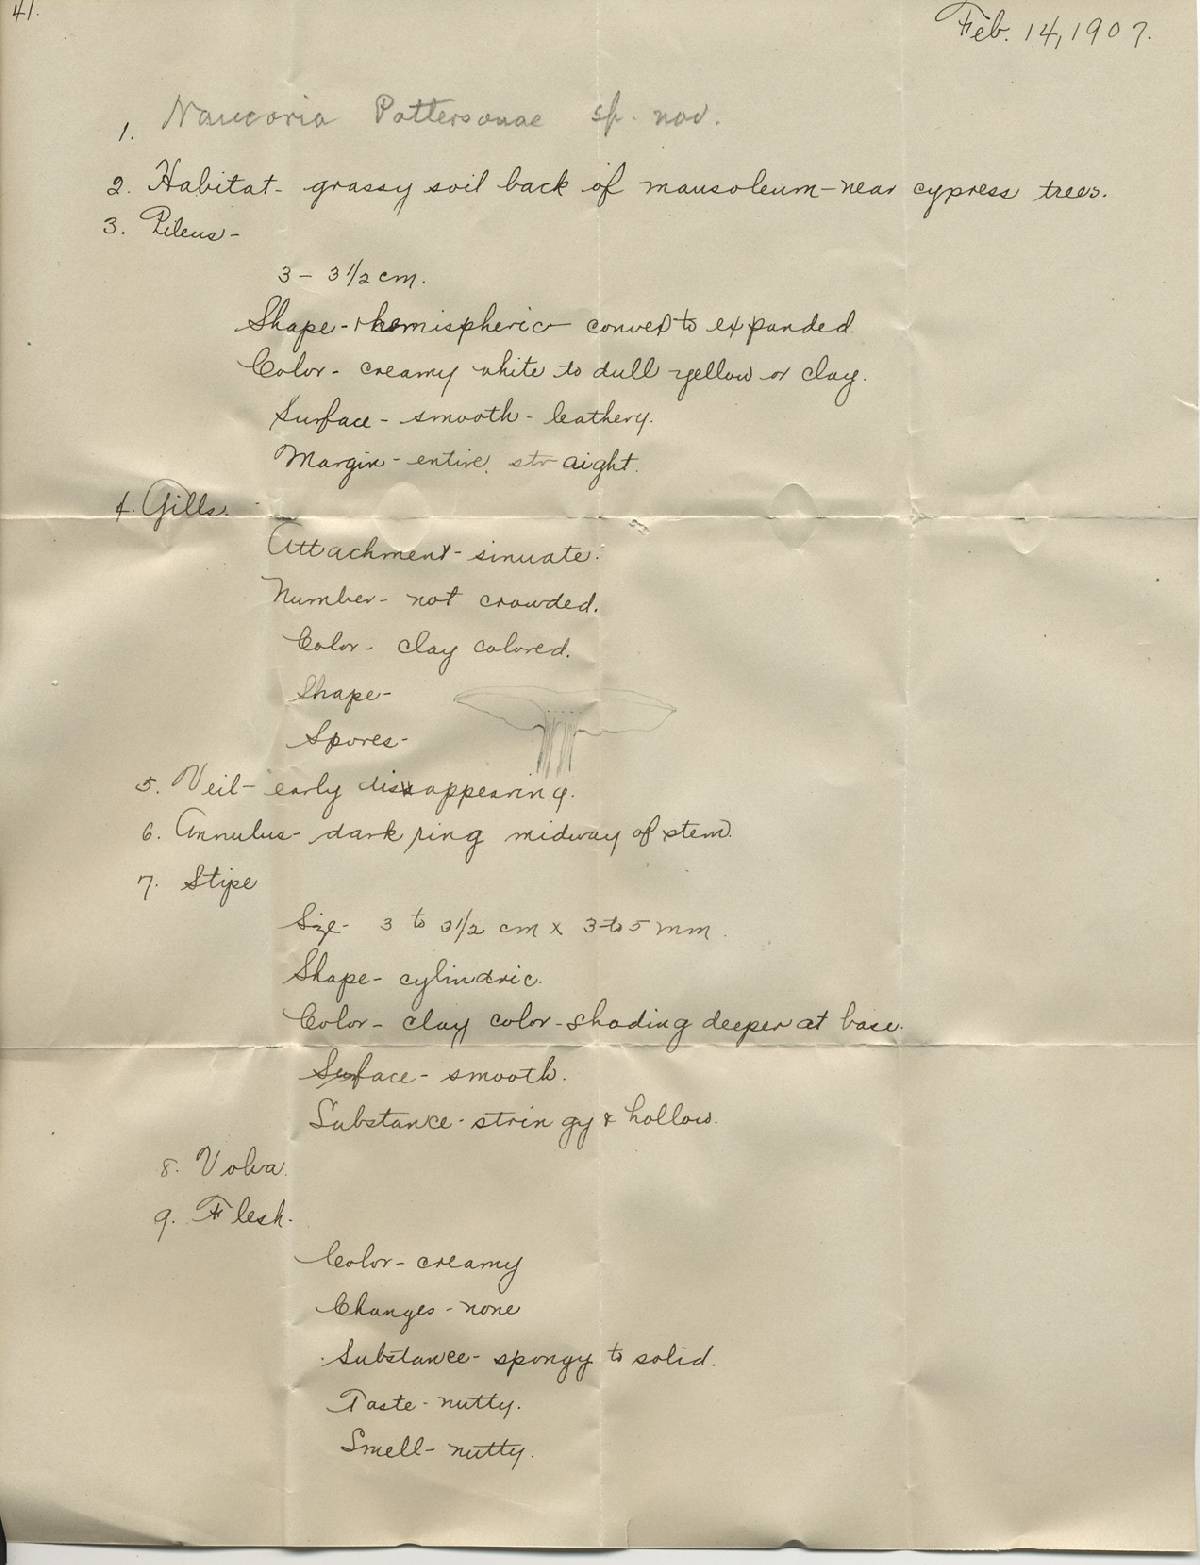 41.
Feb. 14, 1907.
1. Naucoria Pattersonae sp. nov.
2. Habitat- grassy soil back of mausoleum-near cypress trees.
3. Pileus-
3 - 3 1/2 cm.
Shape- hemispheric- convex to expanded
Color- creamy white to dull yellow or clay.
Surface - smooth - leathery.
Margin - entire, straight.
4. Gills.
Attachment- sinuate.
Number- not crowded.
Color- clay colored.
Shape-
Spores-
5. Veil- early disappearing.
6. Annulus- dark ring midway of stem.
7. Stipe
Size- 3 to 3 1/2 cm x 3 to 5 mm.
Shape- cylindric.
Color- clay color-shading deeper at base.
Surface- smooth.
Substance- stringy & hollow.
8. Volva.
9. Flesh.
Color- creamy
Changes- none
Substance- spongy to solid.
Taste- nutty.
Smell- nutty.